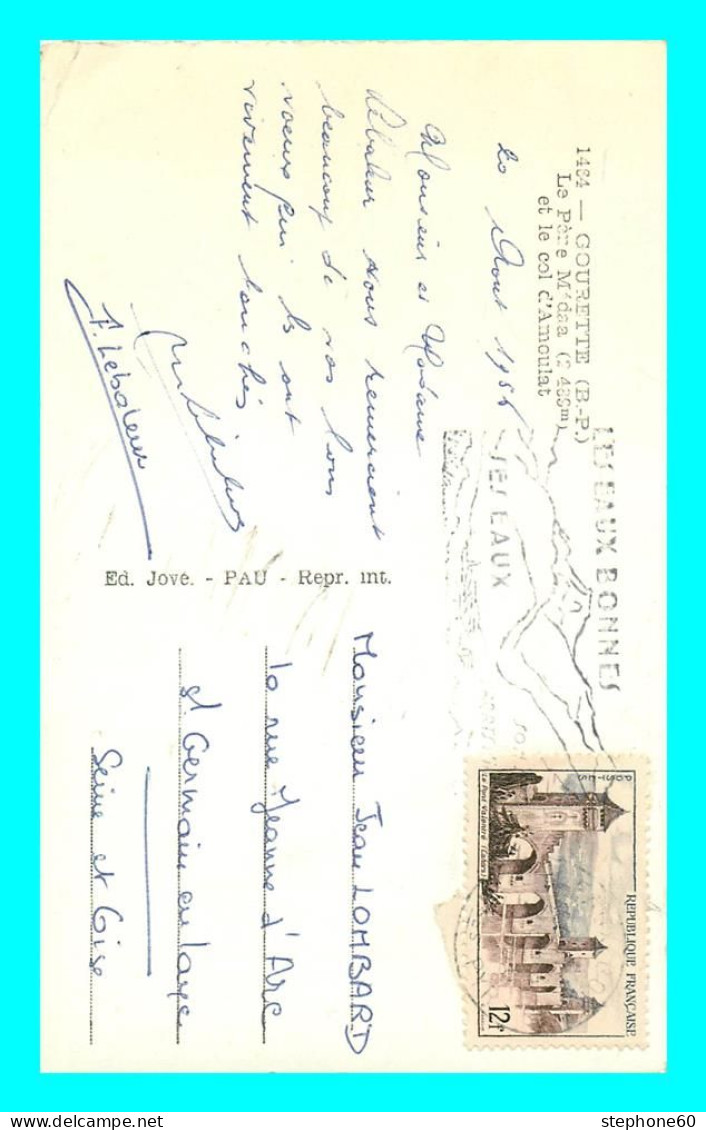 1484 — GOURETTE (B.-P.)
Le Père M'daa (2 489m)
et le col d'Amoulat
20 Aout 1956
Monsieur et Madame
Lebaleur vous remercient
beaucoup de vos bons
voeux qui les ont
vivement touchés
F. Lebaleur
Ed. Jové. - PAU - Repr. int.
LES EAUX BONNES
SES EAUX
POSTES
REPUBLIQUE FRANÇAISE
Le Pont Valentré (Cahors)
12f
Monsieur Jean LOMBARD
10 rue Jeanne d'Arc
St Germain en Laye
Seine et Oise
stephone60